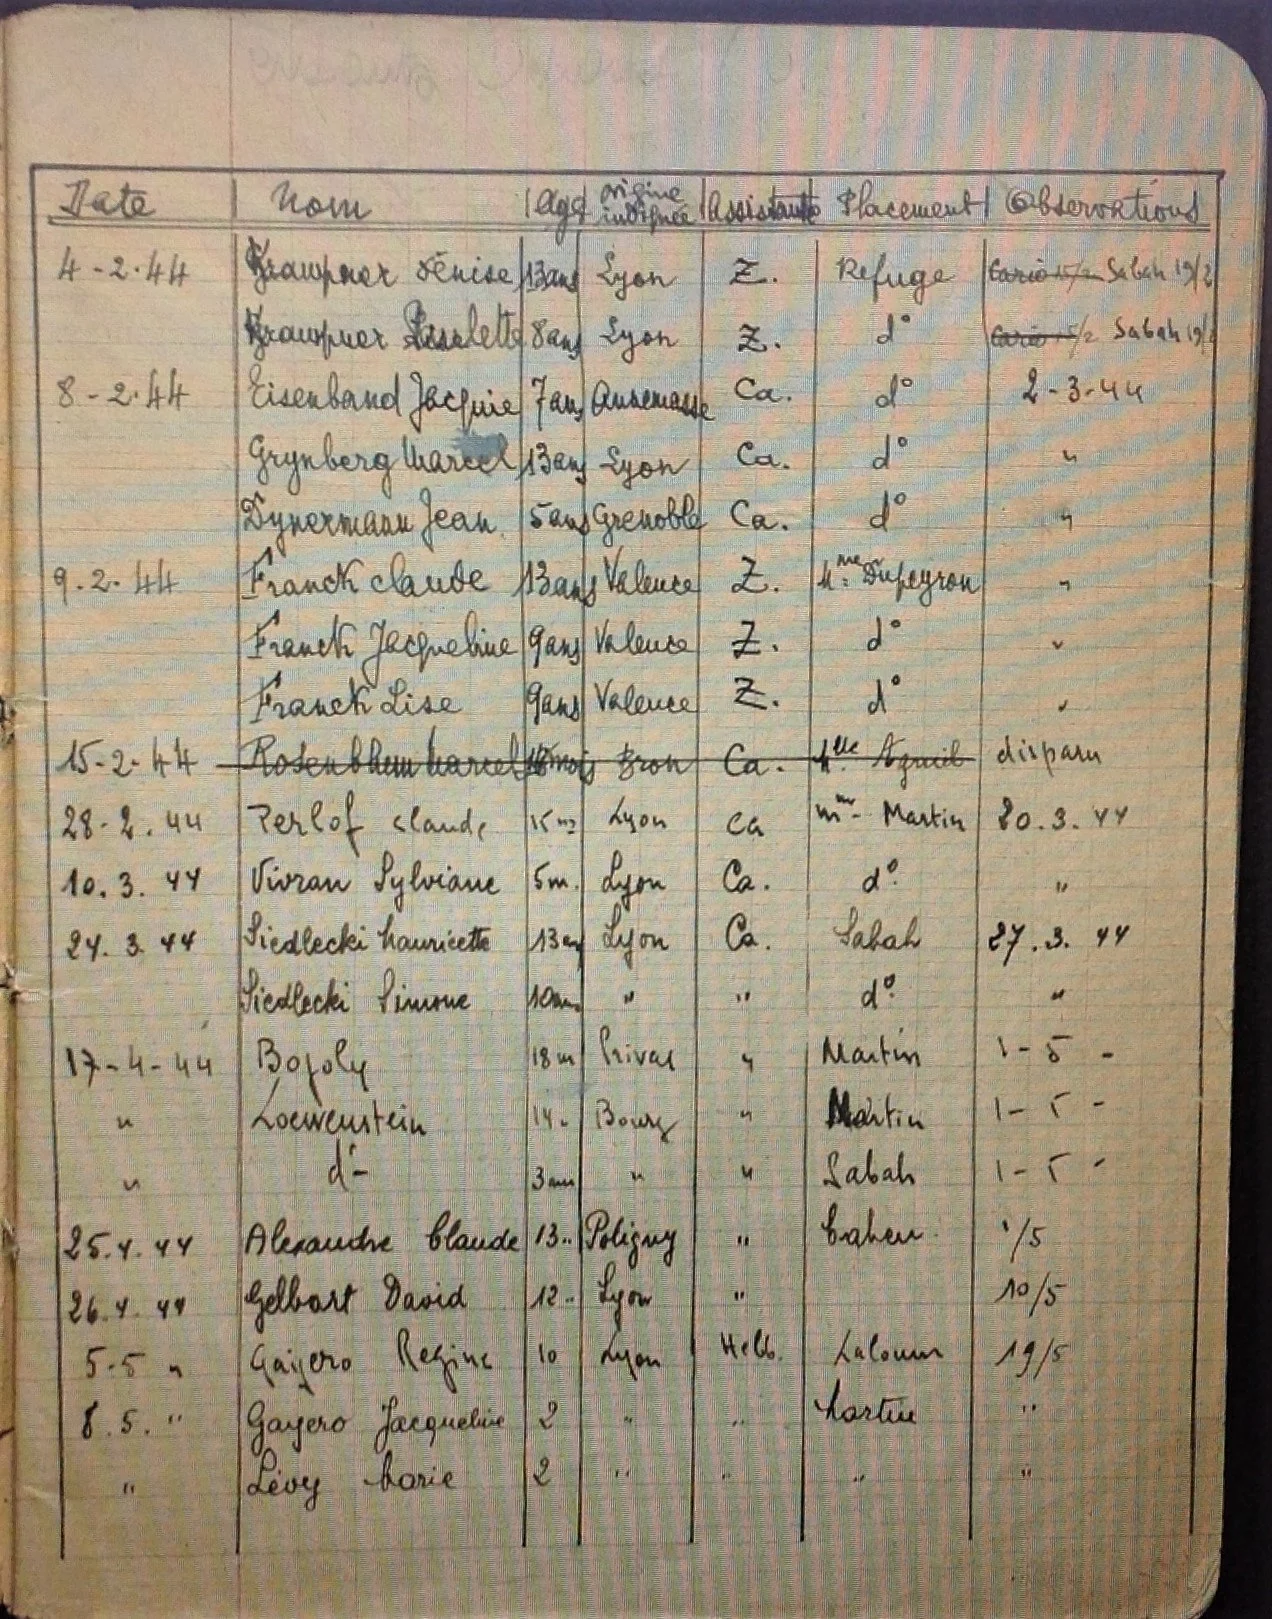 Date Nom Age origine indiquée Assistante Placement Observations
4-2-44 Kraupner Dénise 13ans Lyon Z. Refuge Cario Sabah 19/2
Kraupner 8ans Lyon Z. d° Cario Sabah 19/
8-2-44 Eisenband Jacquie 7ans Annemasse Ca. d° 2-3-44
Grynberg Marcel 13ans Lyon Ca. d° "
Dynermann Jean 5ans Grenoble Ca. d° "
9.2.44 Franck Claude 13ans Valence Z. Mme Dupeyron "
Franck Jacqueline 9ans Valence Z. d° "
Franck Lise 9ans Valence Z. d° "
15-2-44 Rosenblum Marcel 18mois Bron Ca. Mlle disparu
28-2.44 Perlof Claude Lyon Ca Mme Martin 20.3.44
10.3.44 Vivran Sylviane 5m. Lyon Ca. d° "
24.3.44 Siedlecki Mauricette 13ans Lyon Ca. Sabah 27.3.44
Siedlecki Simone 10ans " " d° "
17-4-44 18m Privas " Martin 1-5-
" Loewenstein 14" Bourg " Martin 1-5-
" d°- 3ans " " Sabah 1-5-
25.4.44 Alexandre Claude 13" Poligny " Cahen 1/5
26.4.44 Gelbart David 12" Lyon " 10/5
5-5 " Gayero Regine 10 Lyon Hebb. Laloum 19/5
8.5. " Gayero Jacqueline 2 " " Martin "
" Lévy Marie 2 " " " "